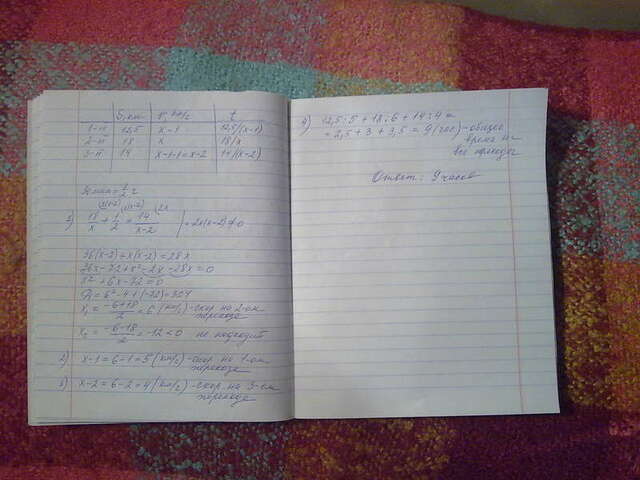 S, км v, км/ч t
1-й 12,5 x-1 12,5/(x-1)
2-й 18 x 18/x
3-й 14 x-1-1=x-2 14/(x-2)
30 мин = 1/2 ч
1) 18/x + 1/2 = 14/(x-2) | 2x(x-2) ≠ 0
36(x-2)+x(x-2)=28x
36x-72+x²-2x-28x=0
x²+6x-72=0
D=6²-4·1·(-72)=324
x₁ = (-6+18)/2 = 6 (км/ч) - скор на 2-ом
переходе
x₂ = (-6-18)/2 = -12 < 0 не подходит
2) x-1=6-1=5 (км/ч) - скор на 1-ом
переходе
3) x-2=6-2=4 (км/ч) - скор на 3-ем
переходе
4) 12,5:5+18:6+14:4=
= 2,5+3+3,5=9(час) - общее
время на
все переходы
Ответ: 9 часов